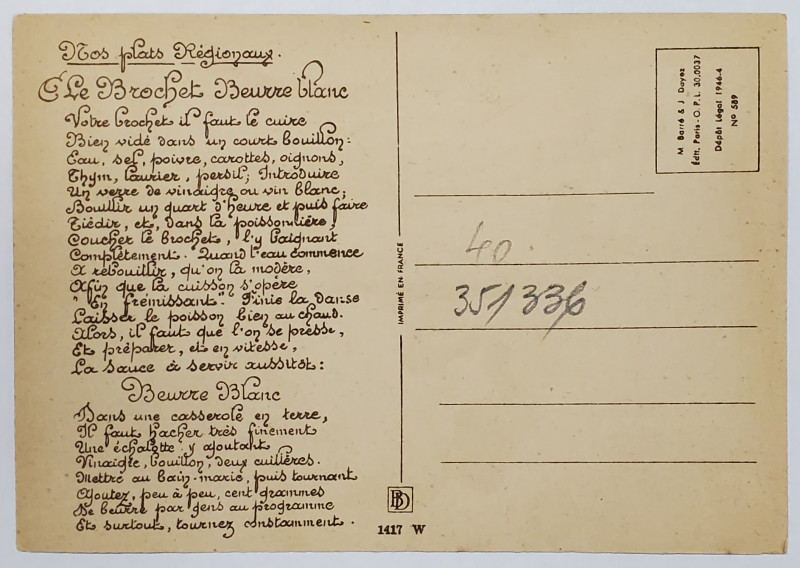 Nos plats Régionaux.
Le Brochet Beurre blanc
Votre brochet il faut le cuire
Bien vidé dans un court bouillon:
Eau, sel, poivre, carottes, oignons,
Thym, laurier, persil; Introduire
Un verre de vinaigre ou vin blanc;
Bouillir un quart d'heure et puis faire
Tiédir, et, dans la poissonnière,
Coucher le brochet, l'y baignant
Complètement. Quand l'eau commence
A rebouillir, qu'on la modère,
Afin que la cuisson s'opère
"En frémissant". Finie la danse
Laisser le poisson bien au chaud.
Alors, il faut que l'on se presse,
Et préparer, et en vitesse,
La sauce à servir aussitôt:
Beurre Blanc
Dans une casserole en terre,
Il faut hacher très finement
Une échalotte y ajoutant
Vinaigre, bouillon, deux cuillères.
Mettre au bain-marie, puis tournant
Ajoutez, peu à peu, cent grammes
De beurre par gens au programme
Et surtout, tournez constamment.
IMPRIMÉ EN FRANCE
BD
1417 W
M Barré & J Dayez
Édit. Paris - O.P.L. 30.0037
Dépôt Légal 1946-4
No 589
40.
351336